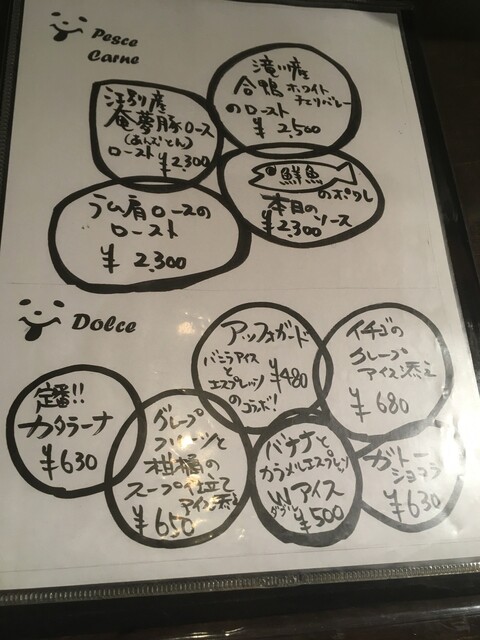 Pesce
Carne
滝川産
合鴨ホワイト
チェリバレー
のロースト
¥2,500
江別産
庵夢豚ロース
(あんずとん)
ロースト ¥2,300
鮮魚
のポワレ
本日の
ソース
¥2,300
ラム肩ロースの
ロースト
¥2,300
Dolce
アッフォガード
バニラアイス
と
エスプレッソ
のコラボ!
¥480
イチゴの
クレープ
アイス添え
¥680
定番!!
カタラーナ
¥630
グレープ
フルーツと
柑橘の
スープ仕立て
アイス添え
¥650
バナナと
カラメルエスプレッソ
Wアイス
ダブル
¥500
ガトー
ショコラ
¥630